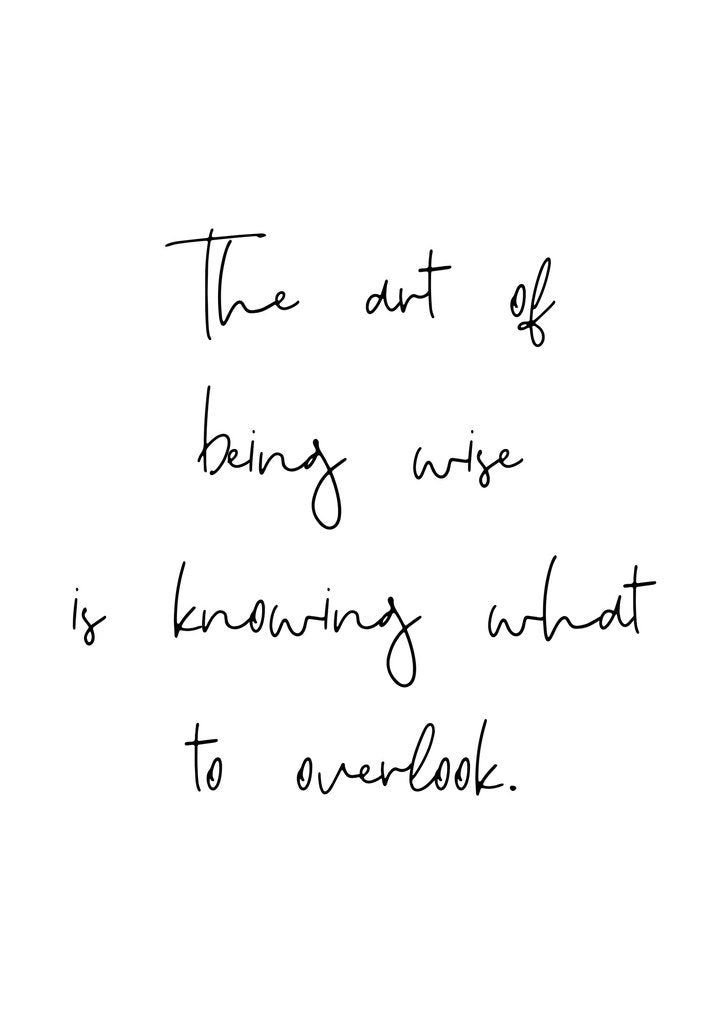 The art of
being wise
is knowing what
to overlook.